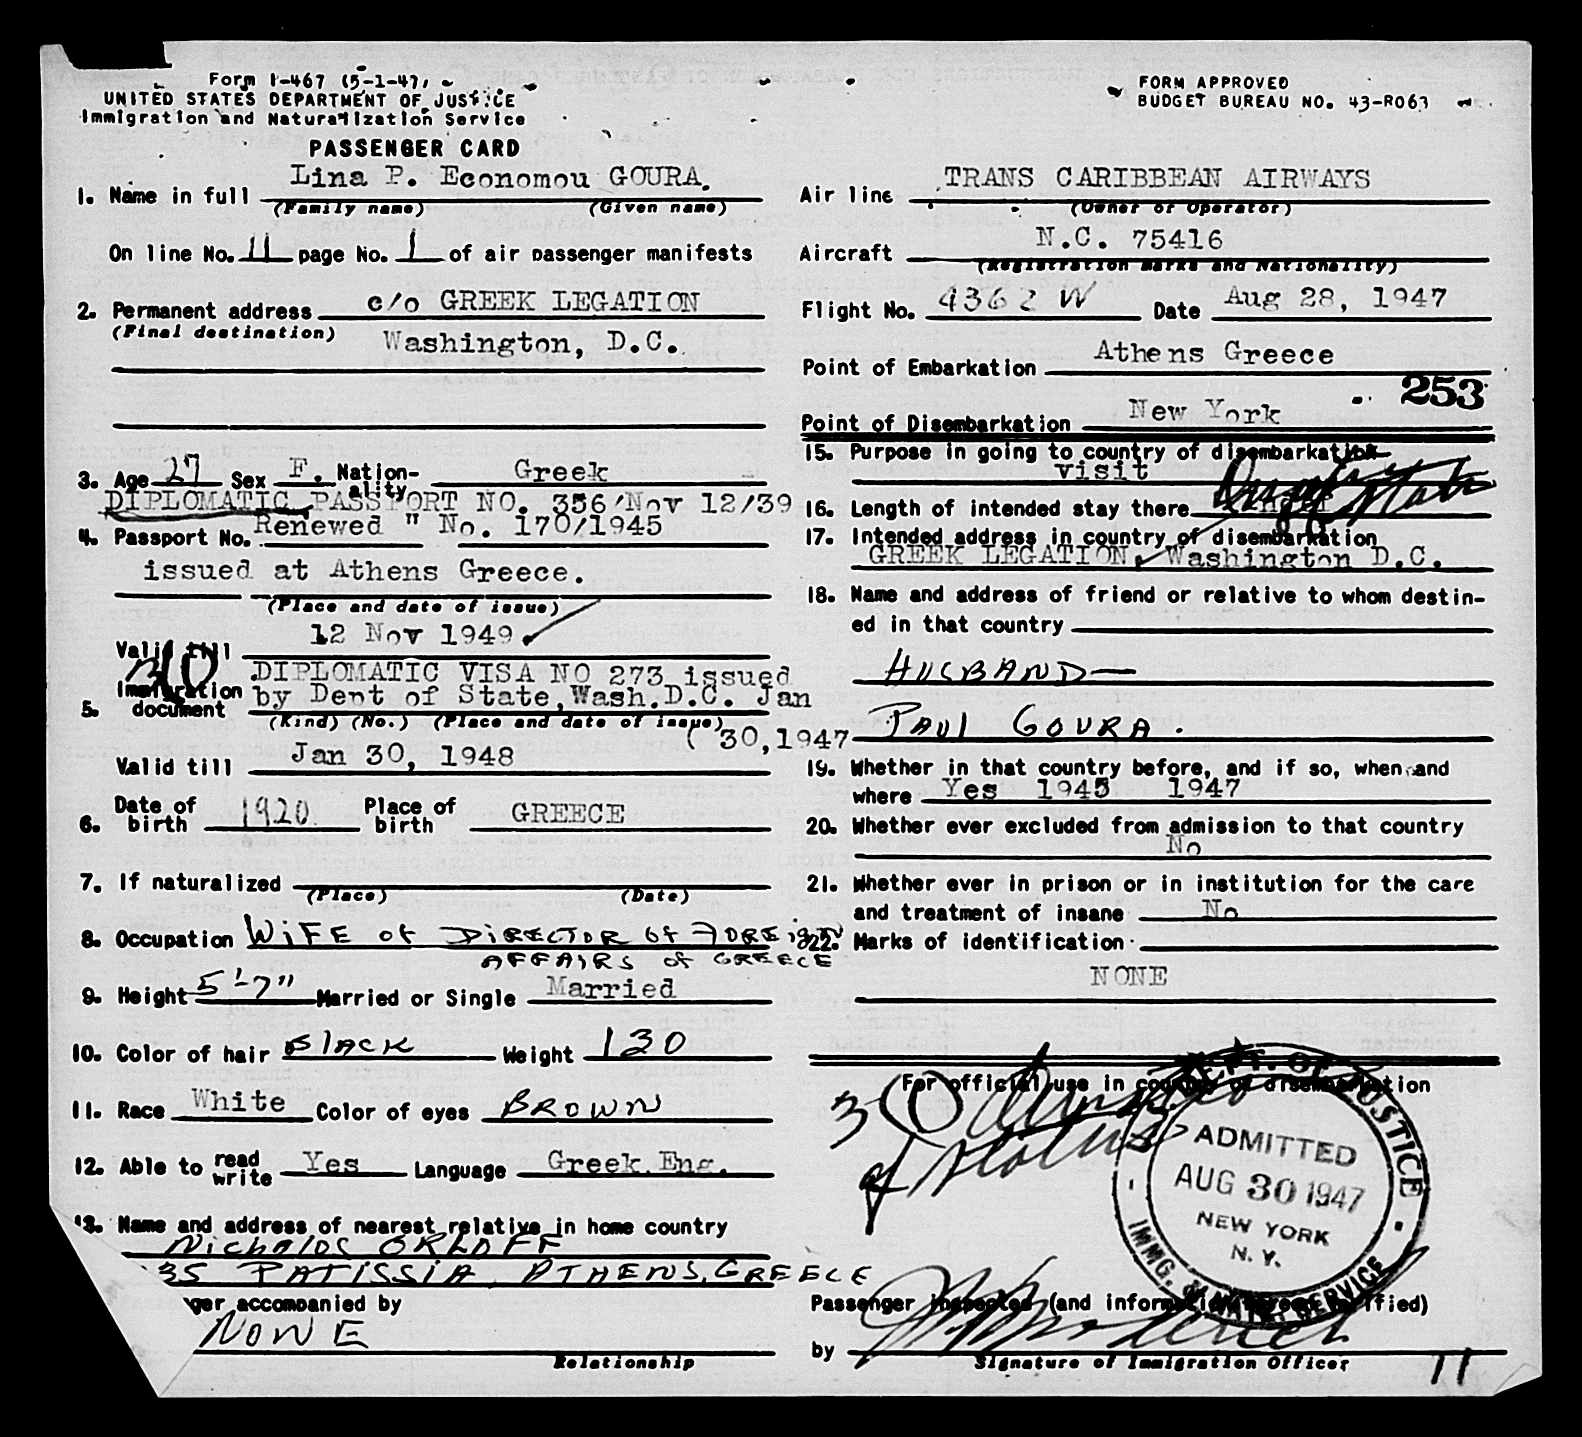 Form I-467 (5-1-47)
UNITED STATES DEPARTMENT OF JUSTICE
Immigration and Naturalization Service
PASSENGER CARD
1. Name in full Lina P. Economou GOURA.
(Family name) (Given name)
On line No. 11 page No. 1 of air passenger manifests
2. Permanent address c/o GREEK LEGATION
(Final destination) Washington, D.C.
3. Age 27 Sex F. Nation-ality Greek
DIPLOMATIC PASSPORT NO. 356/Nov 12/39
4. Passport No. Renewed " No. 170/1945
issued at Athens Greece.
(Place and date of issue)
Valid till 12 Nov 1949
DIPLOMATIC VISA NO 273 issued
5. Immigration document by Dept of State, Wash.D.C. Jan
(Kind) (No.) (Place and date of issue)
( 30,1947
Valid till Jan 30, 1948
6. Date of birth 1920 Place of birth GREECE
7. If naturalized
(Place) (Date)
8. Occupation WIFE OF DIRECTOR OF FOREIGN
AFFAIRS OF GREECE
9. Height 5'-7" Married or Single Married
10. Color of hair BLACK Weight 130
11. Race White Color of eyes BROWN
12. Able to read write Yes Language Greek.Eng.
13. Name and address of nearest relative in home country
Nicholas ORLOFF
35 PATISSIA, ATHENS, GREECE
ger accompanied by
NONE
Relationship
FORM APPROVED
BUDGET BUREAU NO. 43-R063
Air line TRANS CARIBBEAN AIRWAYS
(Owner or Operator)
Aircraft N.C. 75416
(Registration marks and Nationality)
Flight No. 4362 W Date Aug 28, 1947
Point of Embarkation Athens Greece
253
Point of Disembarkation New York
15. Purpose in going to country of disembarkation
visit
16. Length of intended stay there
17. Intended address in country of disembarkation
GREEK LEGATION, Washington D.C.
18. Name and address of friend or relative to whom destin-
ed in that country
HUSBAND—
PAUL GOURA.
19. Whether in that country before, and if so, when and
where Yes 1945 1947
20. Whether ever excluded from admission to that country
No
21. Whether ever in prison or in institution for the care
and treatment of insane No
22. Marks of identification
NONE
For official use in country of disembarkation
3(1)
Duration
of status
DEPT. OF JUSTICE
ADMITTED
AUG 30 1947
NEW YORK
N.Y.
IMMG. & NATZN SERVICE
Passenger inspected (and information hereon verified)
by
Signature of Immigration Officer
11